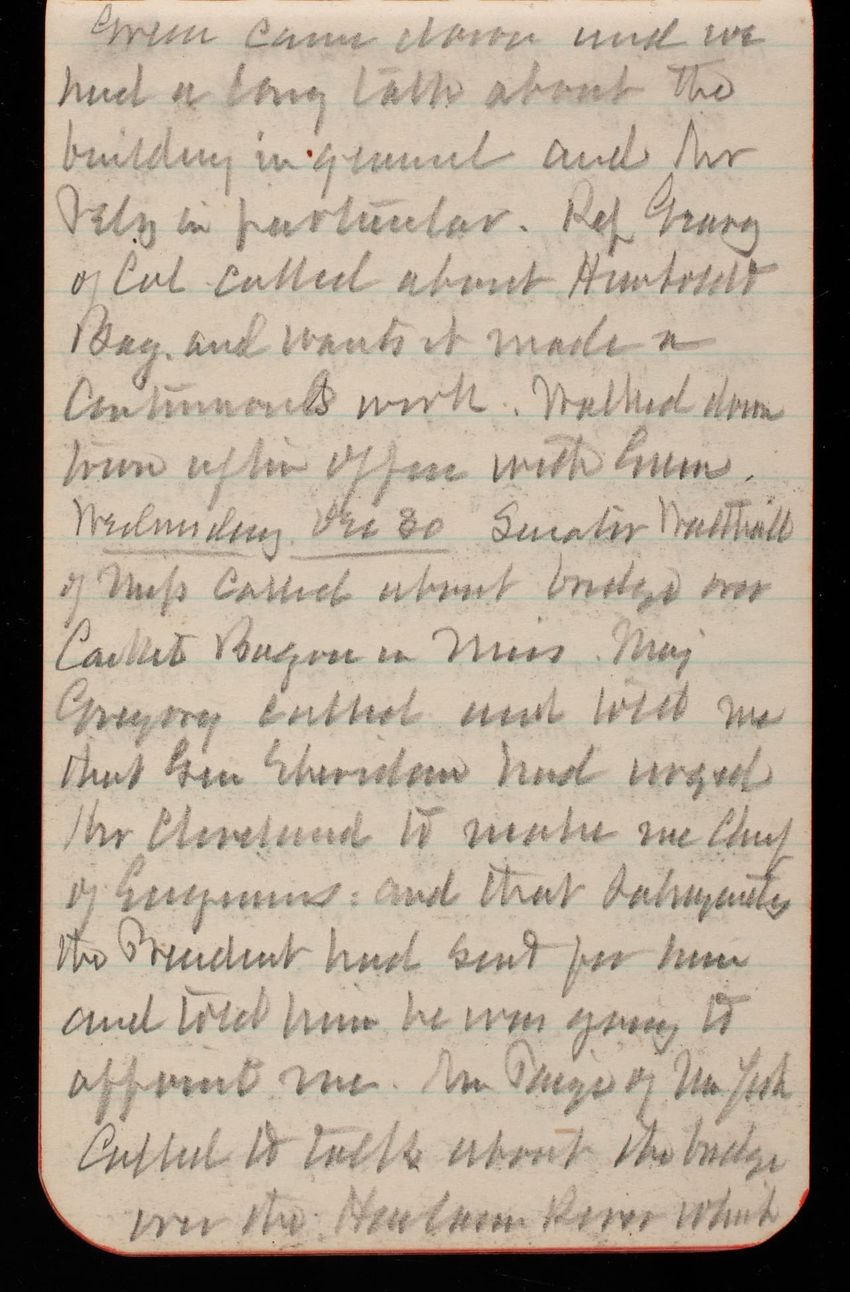 Green came down and we
had a long talk about the
building in general and Mr
in particular. Rep Geary
of Cal called about Humboldt
Bay. and wants it made a
Continuous work. Walked down
town after office with Green.
Wednesday Dec 30 Senator Walthall
of Miss called about bridge over
Bayou in Miss. Maj
Gregory called and told me
that Gen Sheridan had urged
Mr Cleveland to make me Chief
of Engineers: and that subsequently
the President had sent for him
and told him he was going to
appoint me. Mr Paige of New York
Called to talk about the bridge
over the Harlaem River which